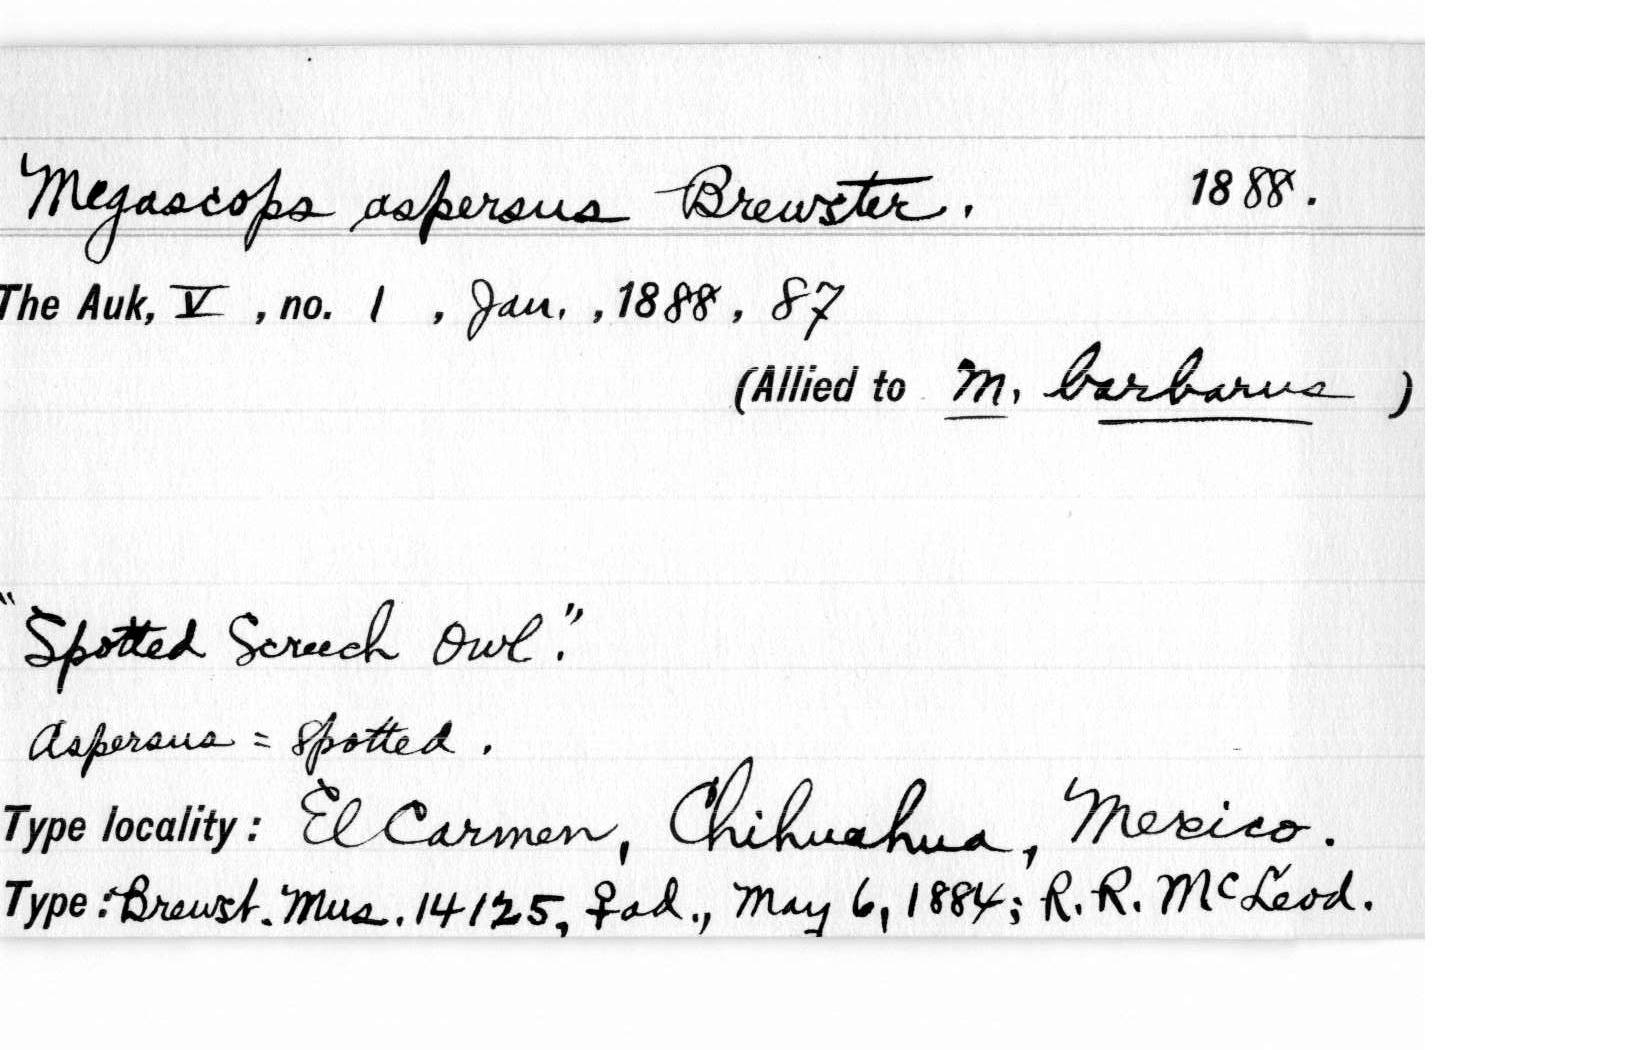 Megascops aspersus Brewster. 1888.
The Auk, V, no. 1, Jan., 1888, 87
(Allied to M. barbarus)
"Spotted Screech Owl."
Aspersus = spotted.
Type locality: El Carmen, Chihuahua, Mexico.
Type: Brewst. Mus. 14125, ♀ ad., May 6, 1884; R. R. McLeod.